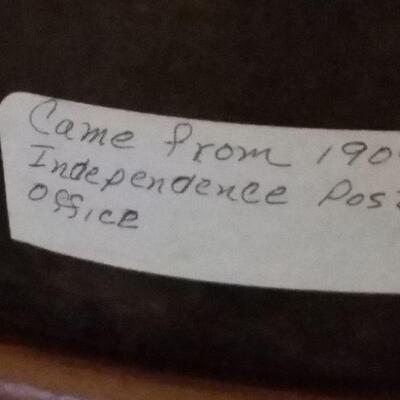 Came from 190
Independence Pos
Office